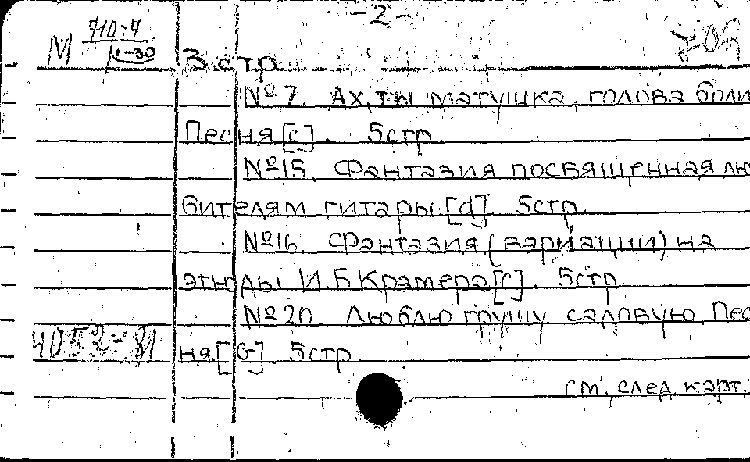 - 2 -
М 710-4
1-30
3 стр
№ 7. Ах, ты матушка, голова боли
Песня [c]. 5стр
№ 15. Фантазия посвященная лю
бителям гитары. [d]. 5стр.
№ 16. Фантазия (вариации) на
этюды И.Б. Крамера [c]. 5стр
№ 20. Люблю грушу садовую. Пес
ня [G] 5стр
см. след. карт.